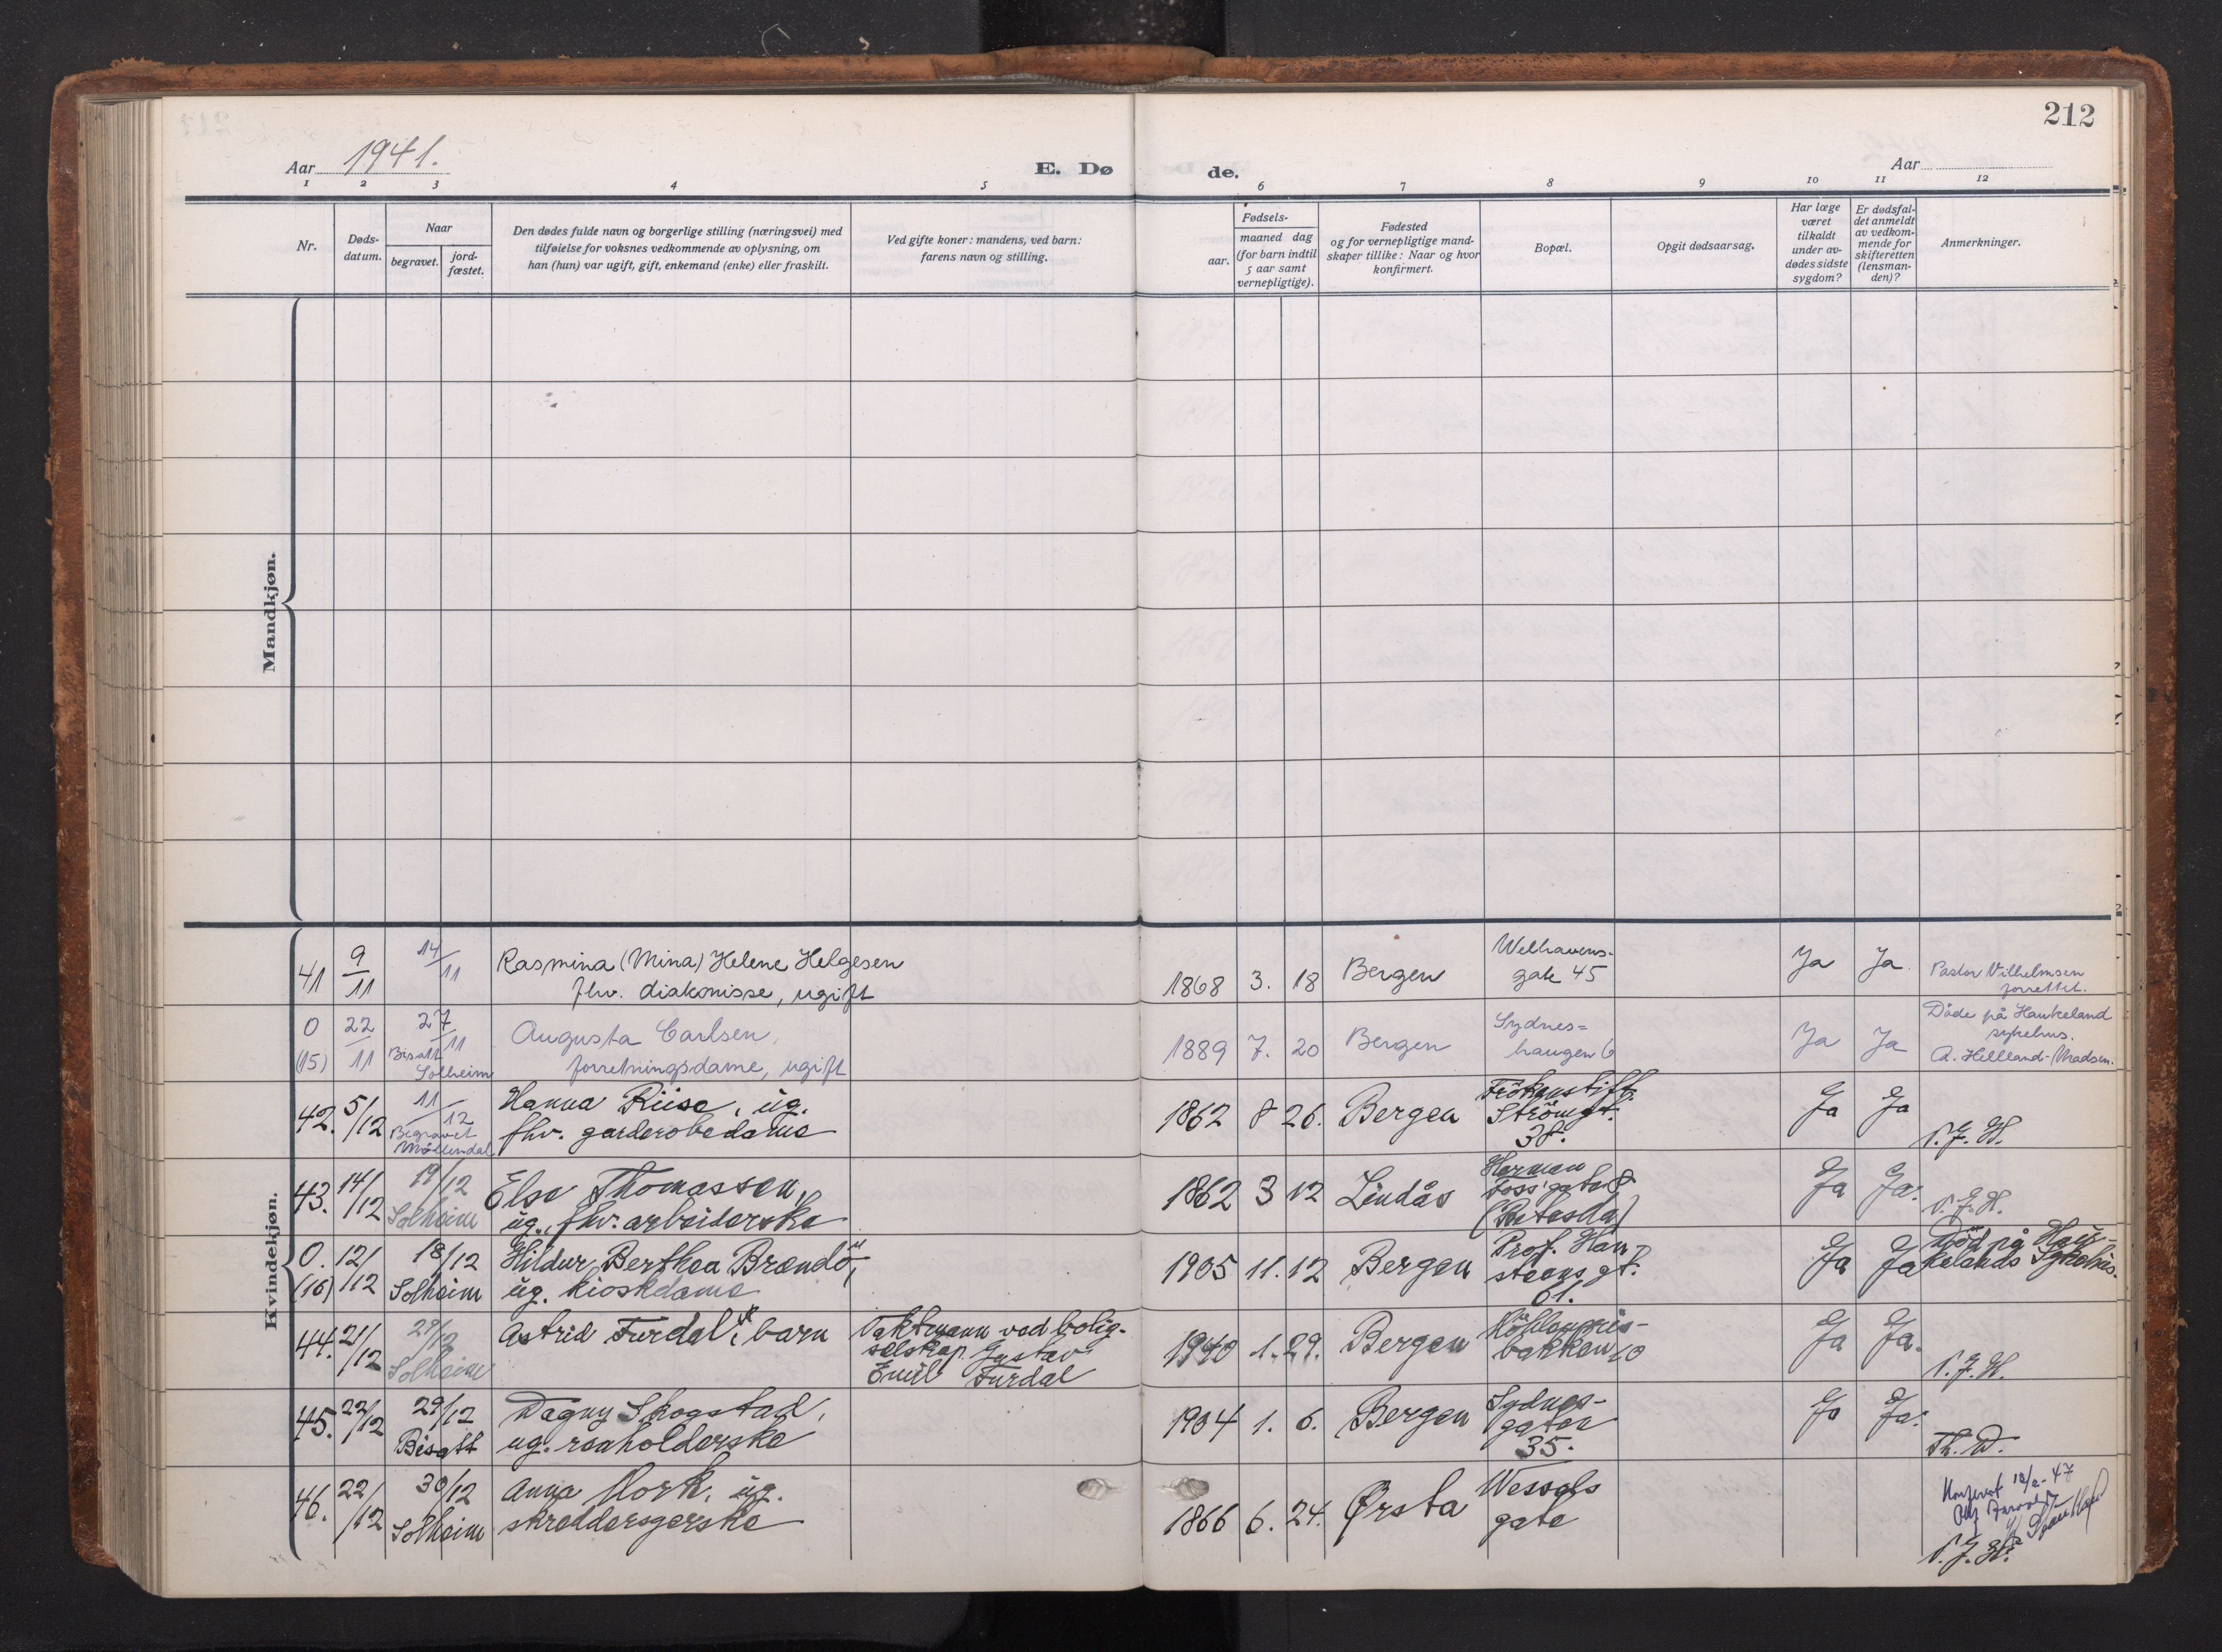 212
Aar 1941.
E. Dø
de.
Aar
1 2 3 4 5 6 7 8 9 10 11 12
Nr.
Døds-
datum.
Naar
begravet.
jord-
fæstet.
Den dødes fulde navn og borgerlige stilling (næringsvei) med
tilføielse for voksnes vedkommende av oplysning, om
han (hun) var ugift, gift, enkemand (enke) eller fraskilt.
Ved gifte koner: mandens, ved barn:
farens navn og stilling.
Fødsels-
aar.
maaned dag
(for barn indtil
5 aar samt
vernepligtige).
Fødested
og for vernepligtige mand-
skaper tillike: Naar og hvor
konfirmert.
Bopæl.
Opgit dødsaarsag.
Har læge
været
tilkaldt
under av-
dødes sidste
sygdom?
Er dødsfal-
det anmeldt
av vedkom-
mende for
skifteretten
(lensman-
den)?
Anmerkninger.
Mandkjøn.
Kvindekjøn.
41 9/11 14/11
Rasmina (Mina) Helene Helgesen
fhv. diakonisse, ugift
1868 3. 18 Bergen
Welhavens-
gate 45
Ja Ja
Pastor Vilhelmsen
forrettet.
0 (15) 22/11 27/11
Bisatt
Solheim
Augusta Carlsen,
forretningsdame, ugift
1889 7. 20 Bergen
Sydnes=
haugen 6
Ja Ja
Døde på Haukeland
sykehus.
A. Hellland-Madsen.
42. 5/12 11/12
Begravet
Møllendal
Hanna Riise, ug.
fhv. garderobedame
1862 8 26. Bergen
Frökenstift.
Strömgt.
38.
Ja Ja
P. J. H.
43. 14/12 19/12
Solheim
Else Thomassen,
ug., fhv. arbeiderske
1862 3 12 Lindås
Herman
Foss' gate 8
(Betesda)
Ja Ja.
P. J. H.
0. (16) 12/12 18/12
Solheim
Hildur Berthea Brændö,
ug. kioskdame
1905 11. 12 Bergen
Prof. Han-
steens gt.
61.
Ja Ja
Död på Hau-
kelands Sykehus.
44. 21/12 29/12
Solheim
Astrid Furdal, barn
Vaktmann ved bolig-
selskap. Gustav
Emil Furdal
1940 1. 29. Bergen
Möhlenpris-
bakken 10
Ja Ja.
P. J. H.
45. 22/12 29/12
Bisatt
Dagny Skogstad,
ug. renholderske
1904 1. 6. Bergen
Sydnes-
gaten
35.
Ja Ja.
Th. D.
46. 22/12 30/12
Solheim
Anna Mork, ug.
skreddersyerske
1866 6. 24. Ørsta
Wessels
gate
P. J. H.